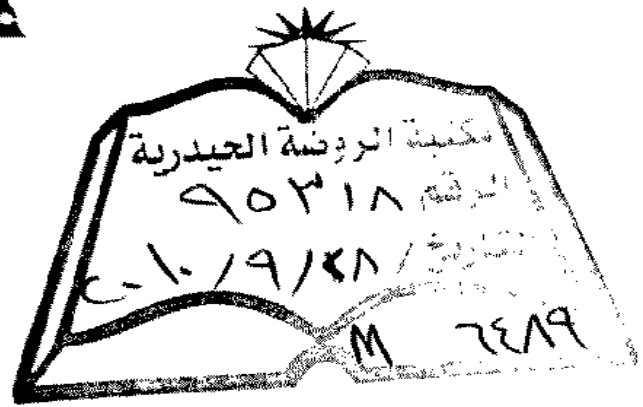 مكتبة الروضة الحيدرية
الرقم ٩٥٣١٨
التاريخ / ٢٠١٠/٩/٢٨
M ٦٤٨٩